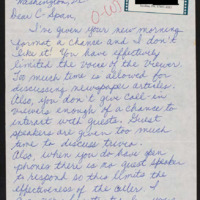 Washington, DC
Dear C-Span,
I've given your new morning
format a chance and I don't
like it! You have effectively
limited the voice of the viewer.
Too much time is allowed for
discussing newspaper articles.
Also, you don't give call-in
viewers enough of a chance to
interact with guests. Guest
speakers are given too much
time to discuss trivia.
Also, when you do have open
phones there is no guest speaker
to respond so this limits the
effectiveness of the caller. I